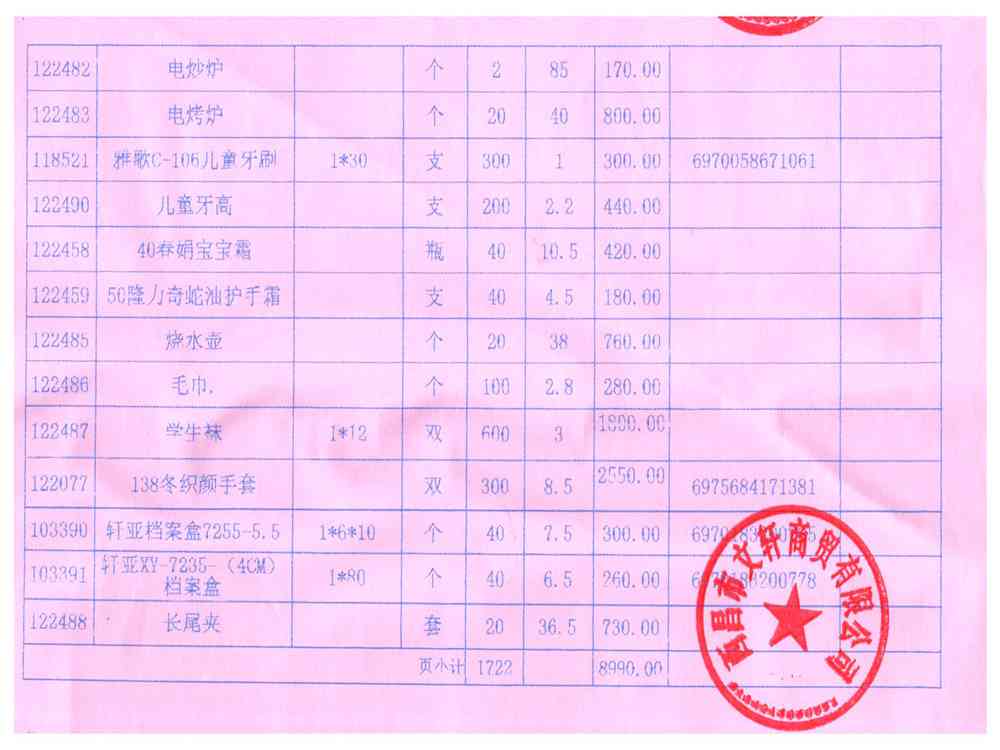 122482 电炒炉 个 2 85 170.00
122483 电烤炉 个 20 40 800.00
118521 雅歌C-106儿童牙刷 1*30 支 300 1 300.00 6970058671061
122490 儿童牙高 支 200 2.2 440.00
122458 40春娟宝宝霜 瓶 40 10.5 420.00
122459 50隆力奇蛇油护手霜 支 40 4.5 180.00
122485 烧水壶 个 20 38 760.00
122486 毛巾. 个 100 2.8 280.00
122487 学生袜 1*12 双 600 3 1800.00
122077 138冬织颜手套 双 300 8.5 2550.00 6975684171381
103390 轩亚档案盒7255-5.5 1*6*10 个 40 7.5 300.00
103391 轩亚XY-7235-（4CM）
档案盒 1*80 个 40 6.5 260.00
122488 长尾夹 套 20 36.5 730.00
页小计 1722 8990.00
文轩商贸有限公司